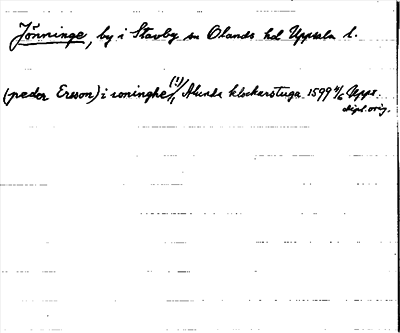 Jönninge, by i Stavby sn Olands hd Uppsala l.
(peder Ereson) i ioninghe (!) // Alunda klockarstuga 1599 4/6 Upps.
dipl. orig.